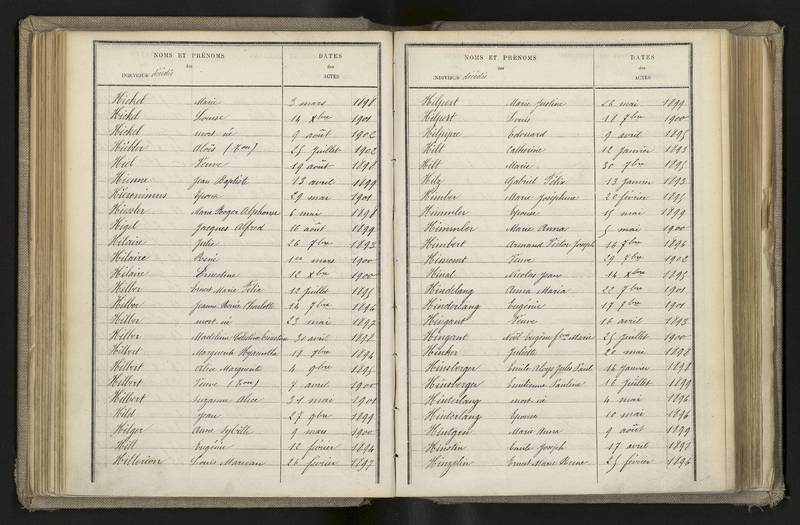 NOMS ET PRÉNOMS DATES
des des
INDIVIDUS décédés ACTES
Hickel Marie 3 mars 1898
Hickel Louise 14 Xbre 1901
Hickel mort né 9 août 1902
Aloïs 25 juillet 1902
Hiel Veuve 19 août 1898
Jean Baptiste 13 avril 1899
Hieronimus Epoux 29 mai 1901
Hiessler Marie Roger Alphonse 6 mai 1898
Higel Jacques Alfred 16 août 1899
Hilaire Julie 26 7bre 1893
Hilaire René 1er mars 1900
Hilaire Ernestine 12 Xbre 1900
Hilbor Ernest Marie Félix 12 juillet 1895
Hilbor Jeanne Maria Charlotte 14 7bre 1896
Hilbor mort né 23 mai 1897
Hilbor Madeleine 30 avril 1898
Hilbert Marguerite Hyacinthe 18 7bre 1894
Hilbert Alice Marguerite 4 9bre 1895
Hilbert Veuve 7 avril 1900
Hilbert Suzanne Alice 31 mai 1901
Hild Jean 27 9bre 1899
Hilger Anne Sybille 9 mars 1900
Hill Eugénie 12 février 1894
Hillerion Louis Marceau 26 février 1897
NOMS ET PRÉNOMS DATES
des des
INDIVIDUS décédés ACTES
Hilpert Marie Justine 26 mai 1899
Hilpert Louis 18 7bre 1900
Hilpipre Edouard 9 avril 1895
Hilt Catherine 12 janvier 1893
Hilt Marie 30 7bre 1895
Hilz Gabriel Félix 13 janvier 1893
Himber Marie Joséphine 20 février 1895
Himmler Epouse 15 mai 1899
Himmler Marie Anna 5 mai 1900
Himbert Armand Victor Joseph 16 7bre 1896
Himont Veuve 29 7bre 1902
Hinal Nicolas Jean 14 Xbre 1895
Hindelang Anna Maria 22 7bre 1901
Hinderlang Eugénie 17 7bre 1901
Hingant Veuve 16 avril 1893
Hingant Noël Eugène Marie 25 juillet 1900
Hinker Juliette 20 mai 1898
Hinsberger Emile Aloys Jules Paul 14 janvier 1898
Hinsberger Emilienne Pauline 16 juillet 1899
Hinterlang mort né 4 mai 1896
Hinterlang Epouse 10 mai 1896
Hintgen Marie Anna 9 août 1899
Hinstin Emile Joseph 17 avril 1898
Hinzelin Ernest Marie Reine 25 février 1896